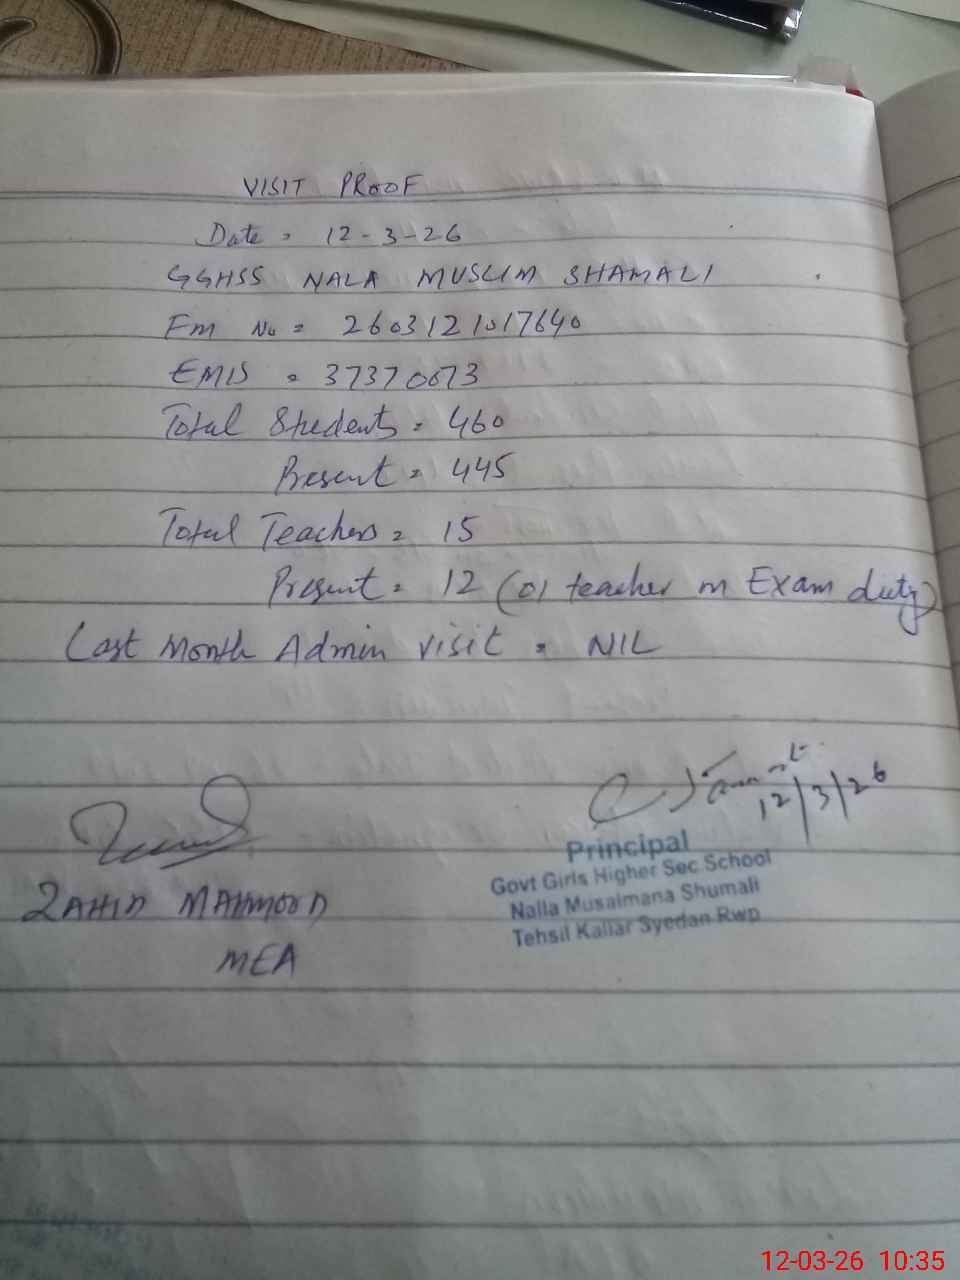 VISIT PROOF
Date = 12-3-26
GGHSS NALA MUSLIM SHAMALI
Fm No = 2603121017640
EMIS = 37370673
Total Students = 460
Present = 445
Total Teachers = 15
Present = 12 (01 teacher on Exam duty)
Last Month Admin visit = NIL
12/3/26
Principal
Govt Girls Higher Sec School
Nalla Musalmana Shumali
Tehsil Kallar Syedan Rwp
ZAHID MAHMOOD
MEA
12-03-26 10:35